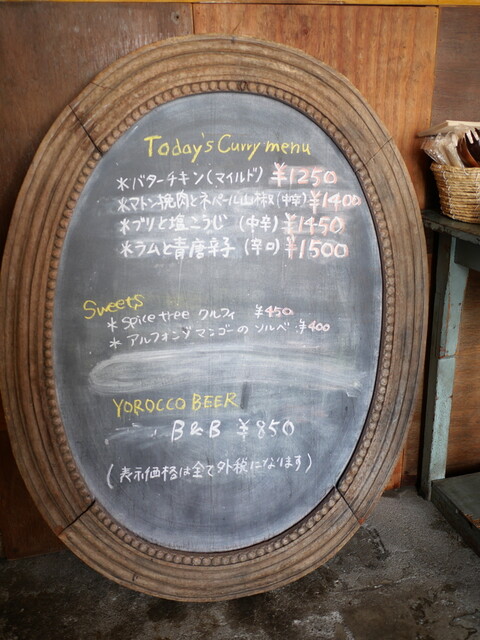 Today's Curry menu
*バターチキン(マイルド) ¥1250
*マトン挽肉とネパール山椒(中辛)¥1400
*ブリと塩こうじ (中辛) ¥1450
*ラムと青唐辛子 (辛口) ¥1500
Sweets
* Spice tree クルフィ ¥450
* アルフォンゾマンゴーの ソルベ ¥400
YOROCCO BEER
B&B ¥850
(表示価格は全て外税になります)